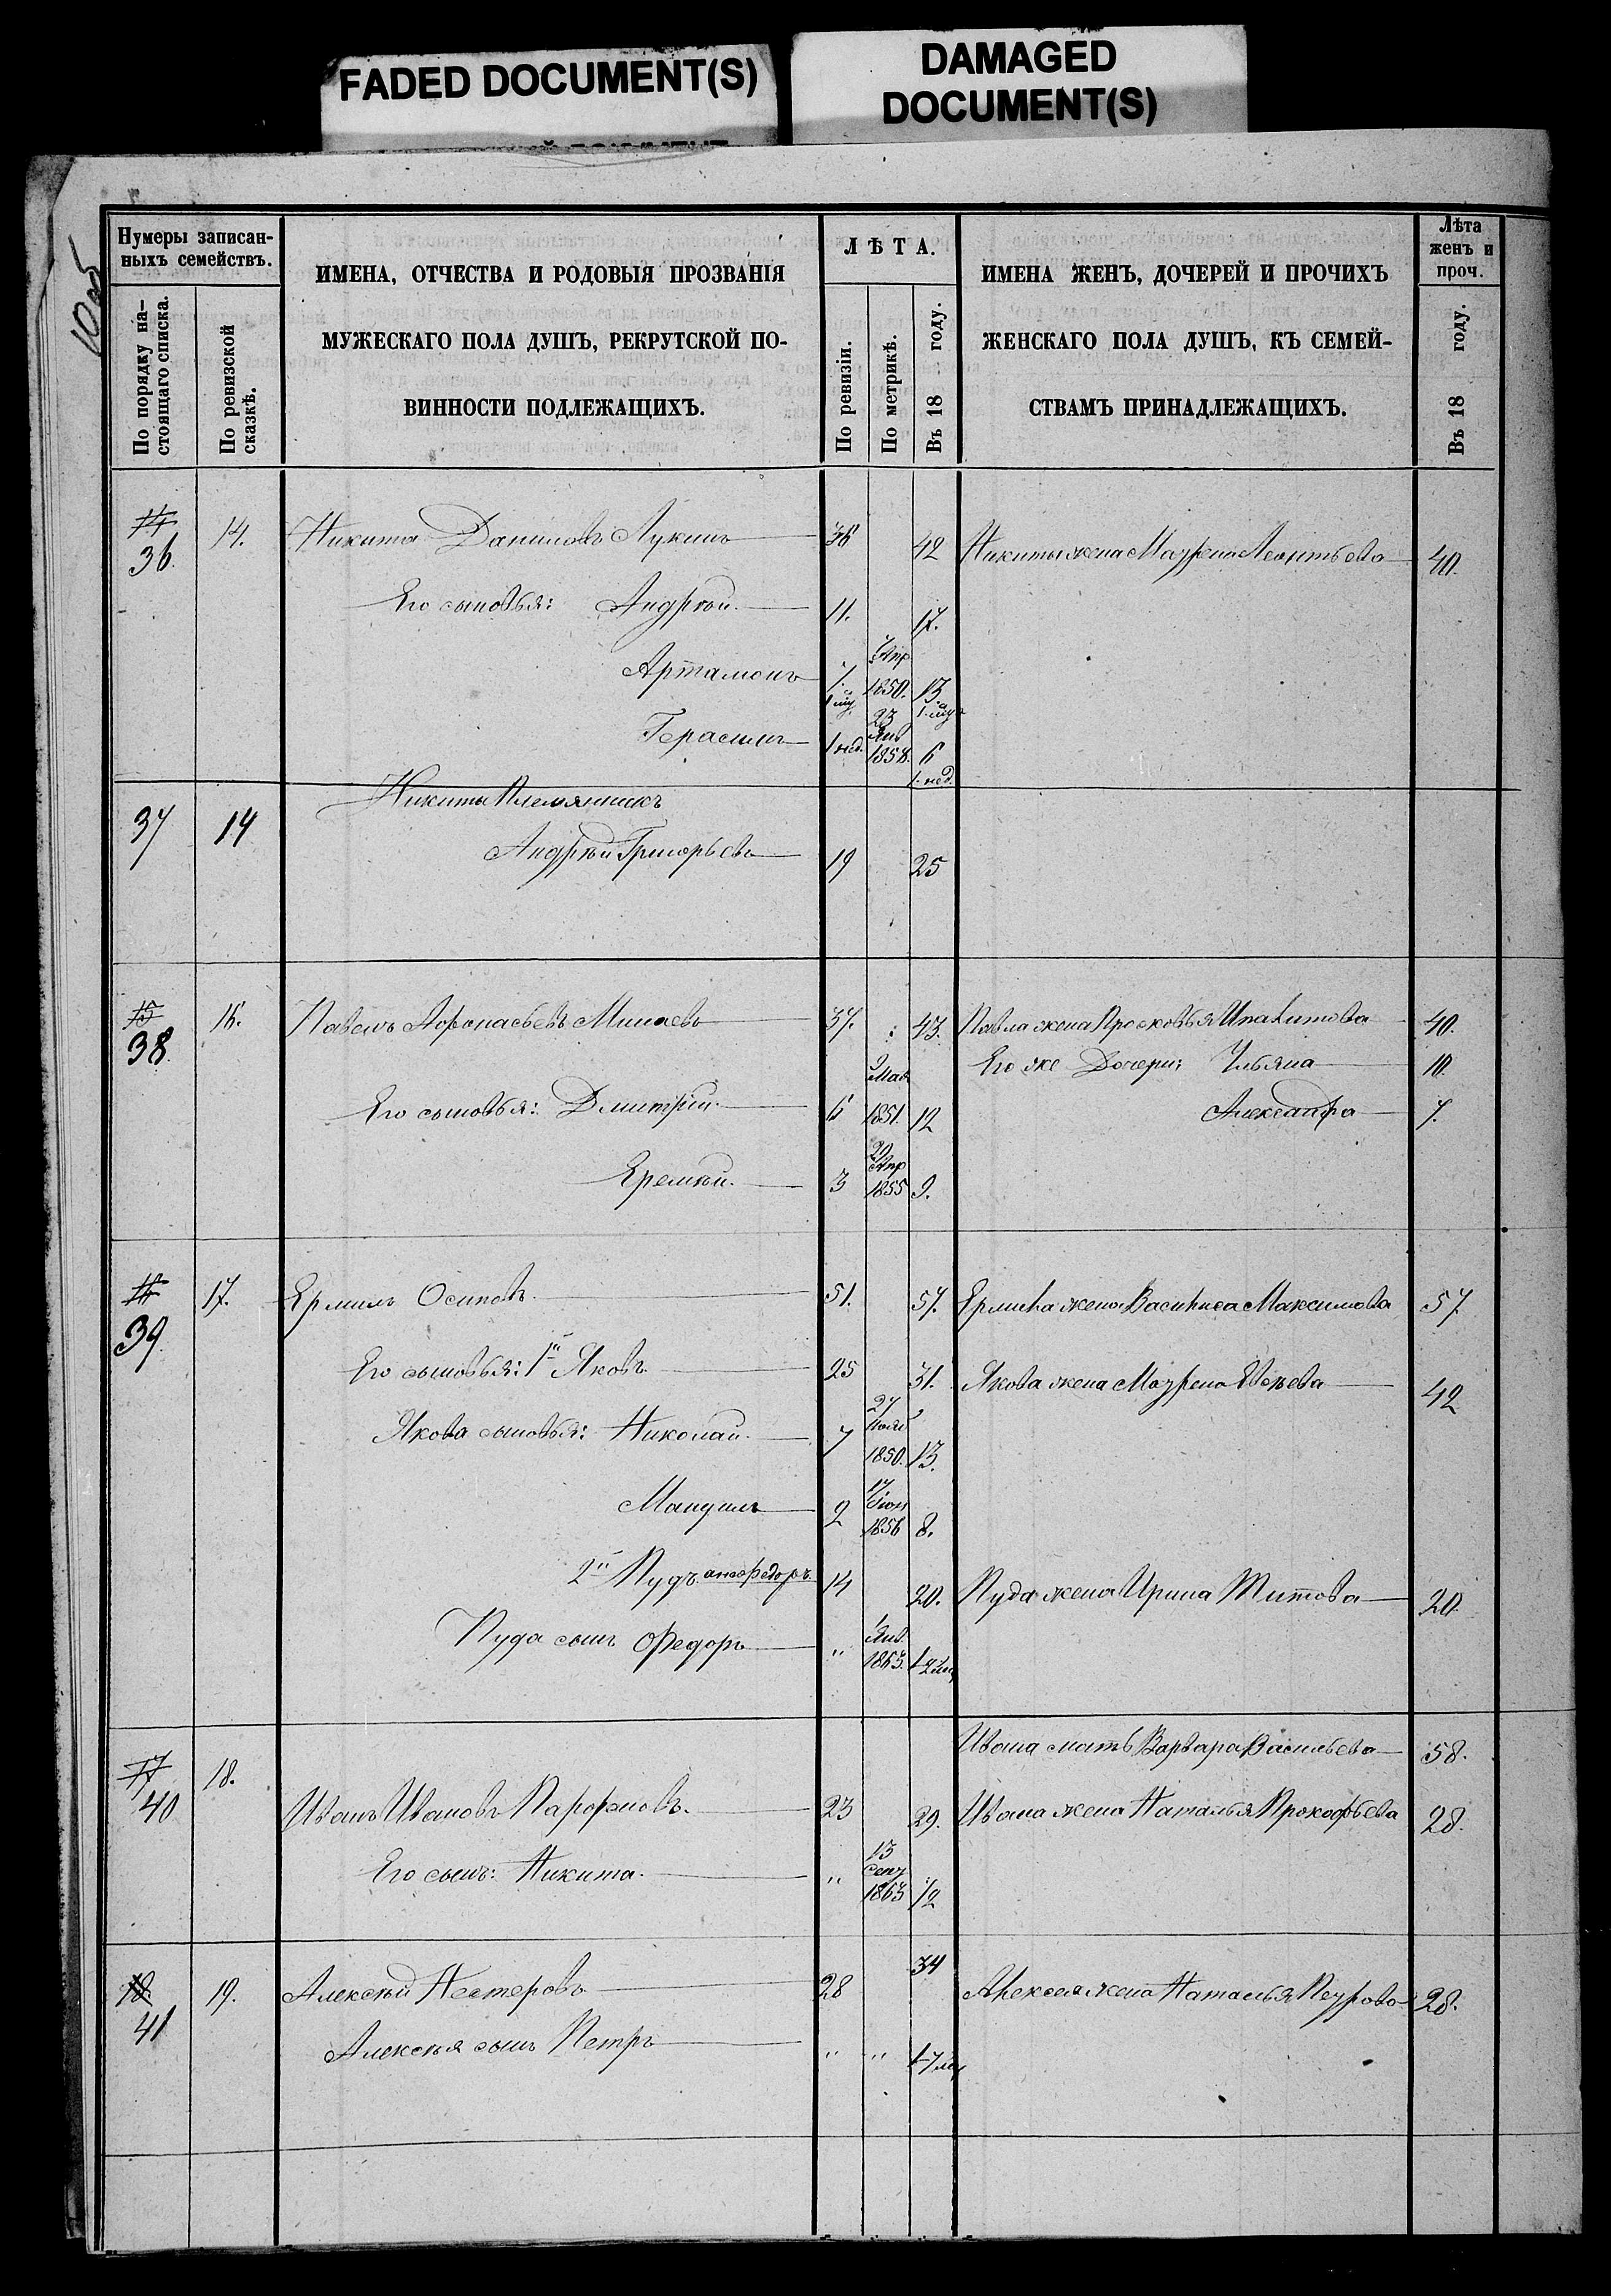 FADED DOCUMENT(S)
DAMAGED
DOCUMENT(S)
Нумеры записан-
ныхъ семействъ.
По порядку на-
стоящаго списка.
По ревизской
сказкѣ.
ИМЕНА, ОТЧЕСТВА И РОДОВЫЯ ПРОЗВАНІЯ
МУЖЕСКАГО ПОЛА ДУШЪ, РЕКРУТСКОЙ ПО-
ВИННОСТИ ПОДЛЕЖАЩИХЪ.
ЛѢТА.
По ревизіи.
По метрикѣ.
Въ 18 году.
ИМЕНА ЖЕНЪ, ДОЧЕРЕЙ И ПРОЧИХЪ
ЖЕНСКАГО ПОЛА ДУШЪ, КЪ СЕМЕЙ-
СТВАМЪ ПРИНАДЛЕЖАЩИХЪ.
Лѣта
женъ и
проч.
Въ 18 году.
14 36. 14. Никита Даниловъ Лукинъ 36 42 Никиты жена Мауфена Леонтьева 40.
Его сыновья: Андрѣй 11. 17.
Артамонъ 7. Апр 1850. 13.
Герасимъ 1 нед. 23 Янв 1858. 6 1. нед.
37 14 Никиты Племянникъ
Андрѣй Григорьевъ 19 25
15 38. 16. Павелъ Афонасьевъ Минаевъ 37. 43. Павла жена Просковья Ипатитова 40.
Его же Дочери: Ульяна 10.
Его сыновья: Дмитрій 6 9 Мая 1851. 12 Александра 7.
Еремѣй 3 20 Апр 1855 9.
16 39. 17. Ермилъ Осиповъ 51. 57. Ермила жена Василиса Максимова 57.
Его сыновья: 1й Яковъ 25 31. Якова жена Маурена Евсѣева 42
Якова сыновья: Николай 7 27 Нояб 1850. 13.
Мануилъ 2 17 Іюн 1856 8.
2й Пудъ 14 20. Пуда жена Ирина Титова 20.
Пуда сынъ Федоръ " 1 Янв. 1863.
Ивана мать Варвара Васильева 58.
17 40 18. Иванъ Ивановъ Парфеновъ. 23 29. Ивана жена Наталья Прокофьева 28.
Его сынъ: Никита. " 13 Сент 1863 1/2
18. 41 19. Алексѣй Нестеровъ 28 34 Алексея жена Наталья Петрова 28.
Алексѣя сынъ Петръ " "